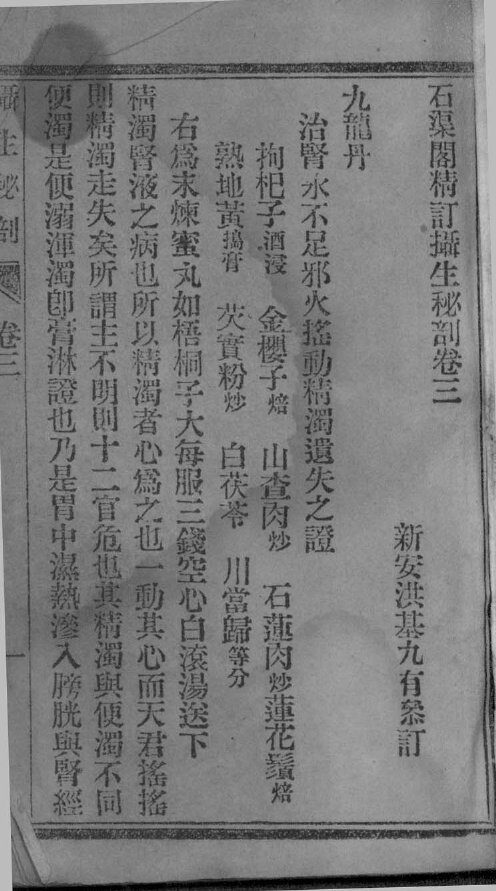 石渠閣精訂攝生秘剖卷三
新安洪基九有叅訂
九龍丹
治腎水不足邪火搖動精濁遺失之證
拘杞子酒浸 金櫻子焙 山查肉炒 石蓮肉炒 蓮花鬚焙
熟地黃搗膏 芡實粉炒 白茯苓 川當歸等分
右爲末煉蜜丸如梧桐子大每服三錢空心白滾湯送下
精濁腎液之病也所以精濁者心爲之也一動其心而天君搖搖
則精濁走失矣所謂主不明則十二官危也其精濁與便濁不同
便濁是便溺渾濁卽膏淋證也乃是胃中濕熱滲入膀胱與腎經
攝生秘剖 卷三 一